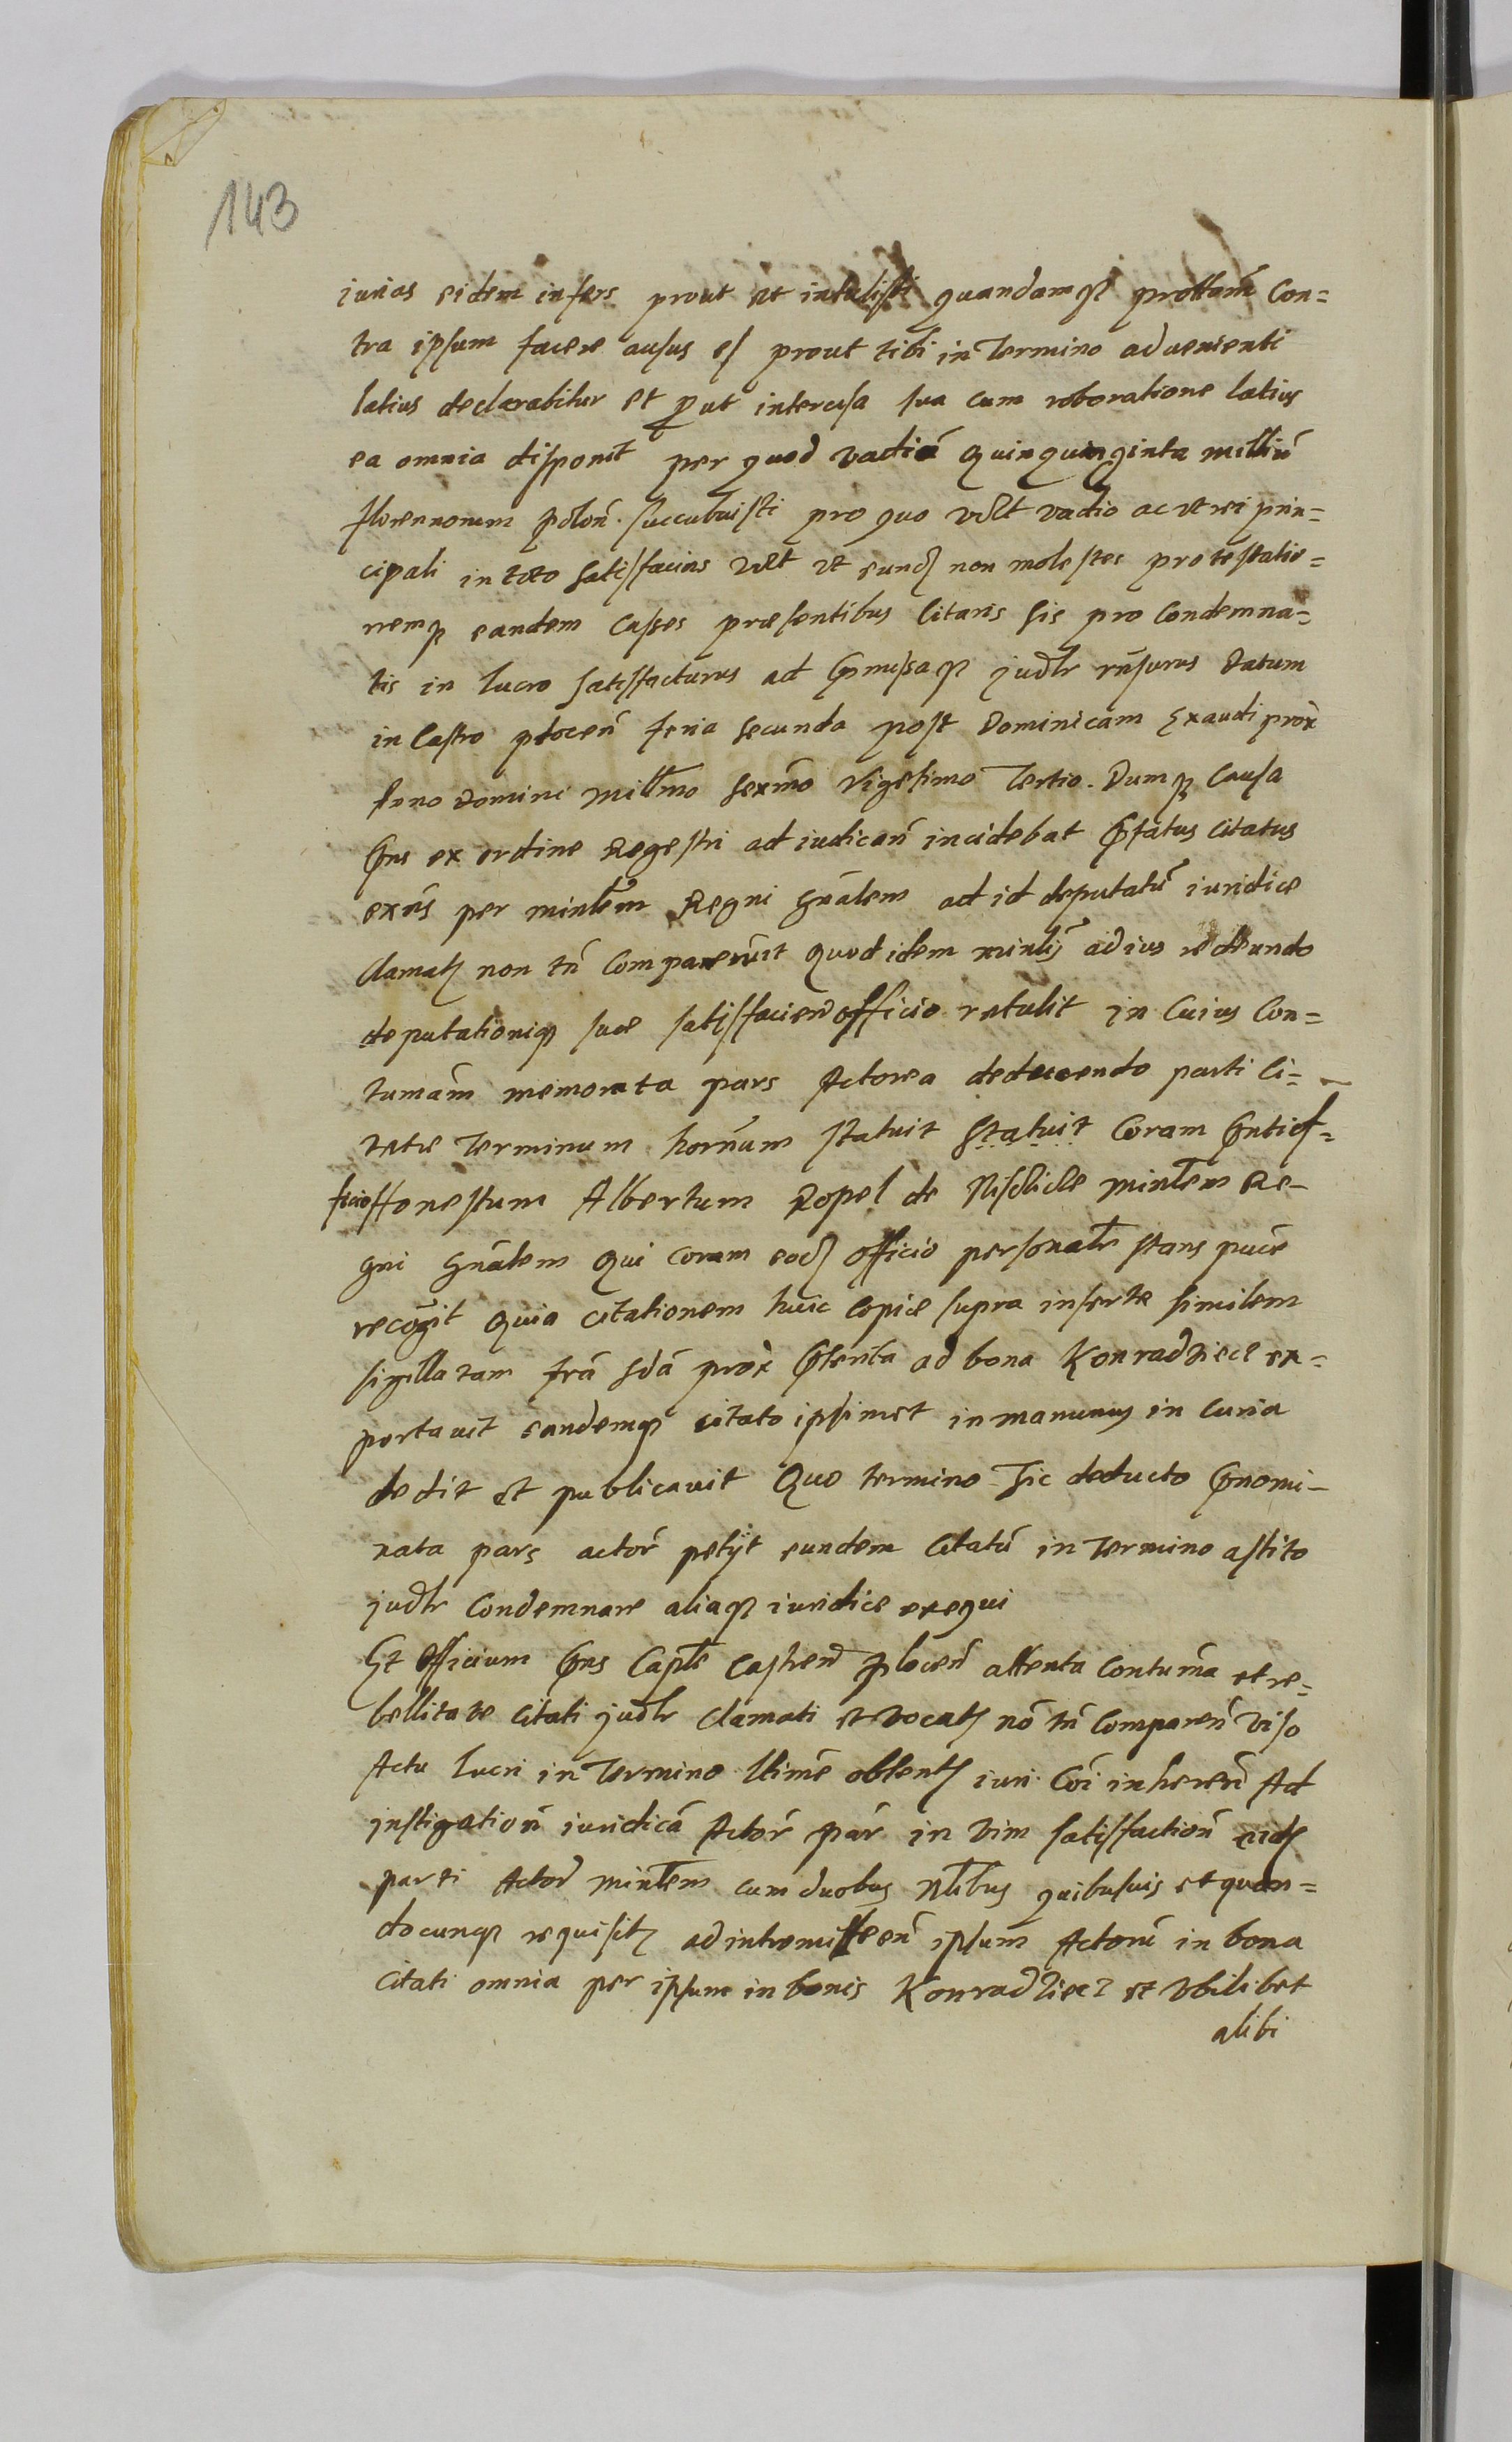 143
iurias eidem infers prout et intulisti quandamq̃ prottam̃ Con=
tra ipsum facere ausus es prout tibi in Termino aduenienti
latius declarabitur et put intercisa sua cum roboratione latius
ea omnia disponit per quod vadiũ quinquaginta milliũ
florenorum polon̄. succubuisti pro quo vult vadio ac et rei prin=
cipali in toto satisfacias vult et eund non molestes protestatio=
nemq̃ eandem Casses præsentibus litaris sis pro Condemna=
tis in lucro satisfacturus ad p̃missaq̃ judlr rn̄surus Datum
in Castro plocen̄ feria secunda post Dominicam Exaudi prox̄
Anno Domini Millmo Sexm̄o Vigesimo Tertio. Dumq̃ Causa
p̃ns ex ordine Regestri ad iudican̄ incidebat p̃fatus Citatus
exn̄s per minlem Regni gn̄alem ad id deputatũ iuridice
Clamat non tn̄ Comparuit quod idem minlis ad ius redeundo
deputationiq̃ suæ satisfacien̄ officio retulit in Cuius Con=
tumām memorata pars Actorea deducendo parti Ci=
tatæ Terminum hornum statuit statuit Coram p̃nti of=
ficio Honestum Albertum Ropel de Mislicle minlem Re-
gni gn̄alem qui coram eod officio personalr stans pucē
recogit quia citationem huic Copiæ supra insertæ similem
sigillatam frā sdā prox̄ p̃terita ad bona Konradziecz ex=
portauit eandemq̃ citato ipsimet in manus in Curia
dedit et publicauit Quo termino sic deducto p̃nomi-
nata pars actor̄ petijt eundem Citatũ in Termino astito
judlr Condemnare aliaq̃ iuridice exequi
Et Officium p̃ns Caplē Castren̄ plocen̄ attenta Contumā et re=
bellitate Citati judlr Clamati et vocat nō tn̄ Comparen̄ viso
Actu lucri in Termino llimē obtent iuri Coi inheren̄ Ad
instigation̄ iuridicā Actor̄ par̄ in vim satisfaction̄ eid
parti Actor̄ minlem cum duobus Nlibus quibusuis et quan=
documq̃ requisit ad intromitten̄ ipsum Actorē in bona
Citati omnia per ipsum in bonis Konradziecz et vbilibet
alibi